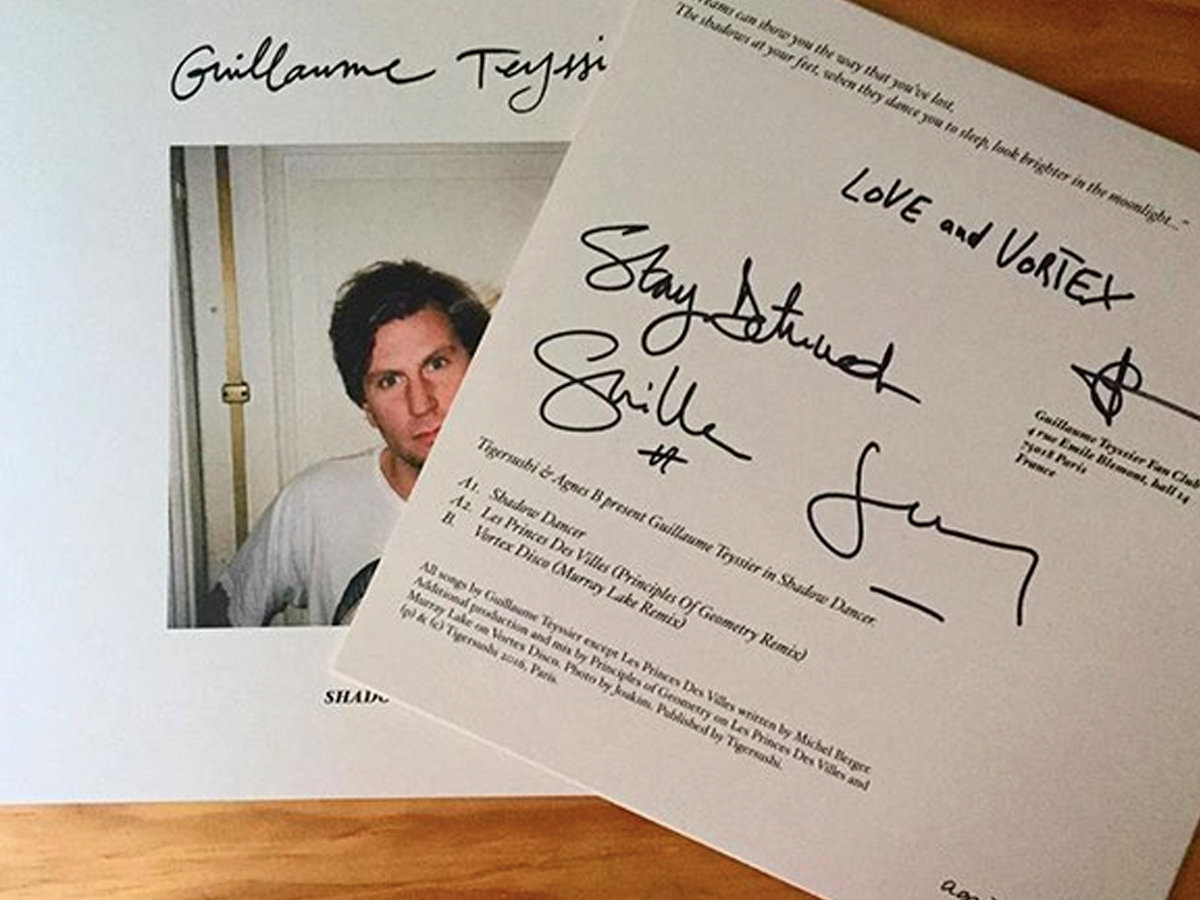 Guillaume Teyssi
SHADO
eams can show you the way that you've lost,
The shadows at your feet, when they dance you to sleep, look brighter in the moonlight..."
LOVE and VORTEX
Stay
Guille
Guillaume Teyssier Fan Club
4 rue Emile Blemont, hall 14
75018 Paris
France
Tigersushi & Agnes B present Guillaume Teyssier in Shadow Dancer
A1. Shadow Dancer
A2. Les Princes Des Villes (Principles Of Geometry Remix)
B. Vortex Disco (Murray Lake Remix)
All songs by Guillaume Teyssier except Les Princes Des Villes written by Michel Berger
Additional production and mix by Principles of Geometry on Les Princes Des Villes and
Murray Lake on Vortex Disco. Photo by Joakim. Published by Tigersushi.
(p) & (c) Tigersushi 2016, Paris.